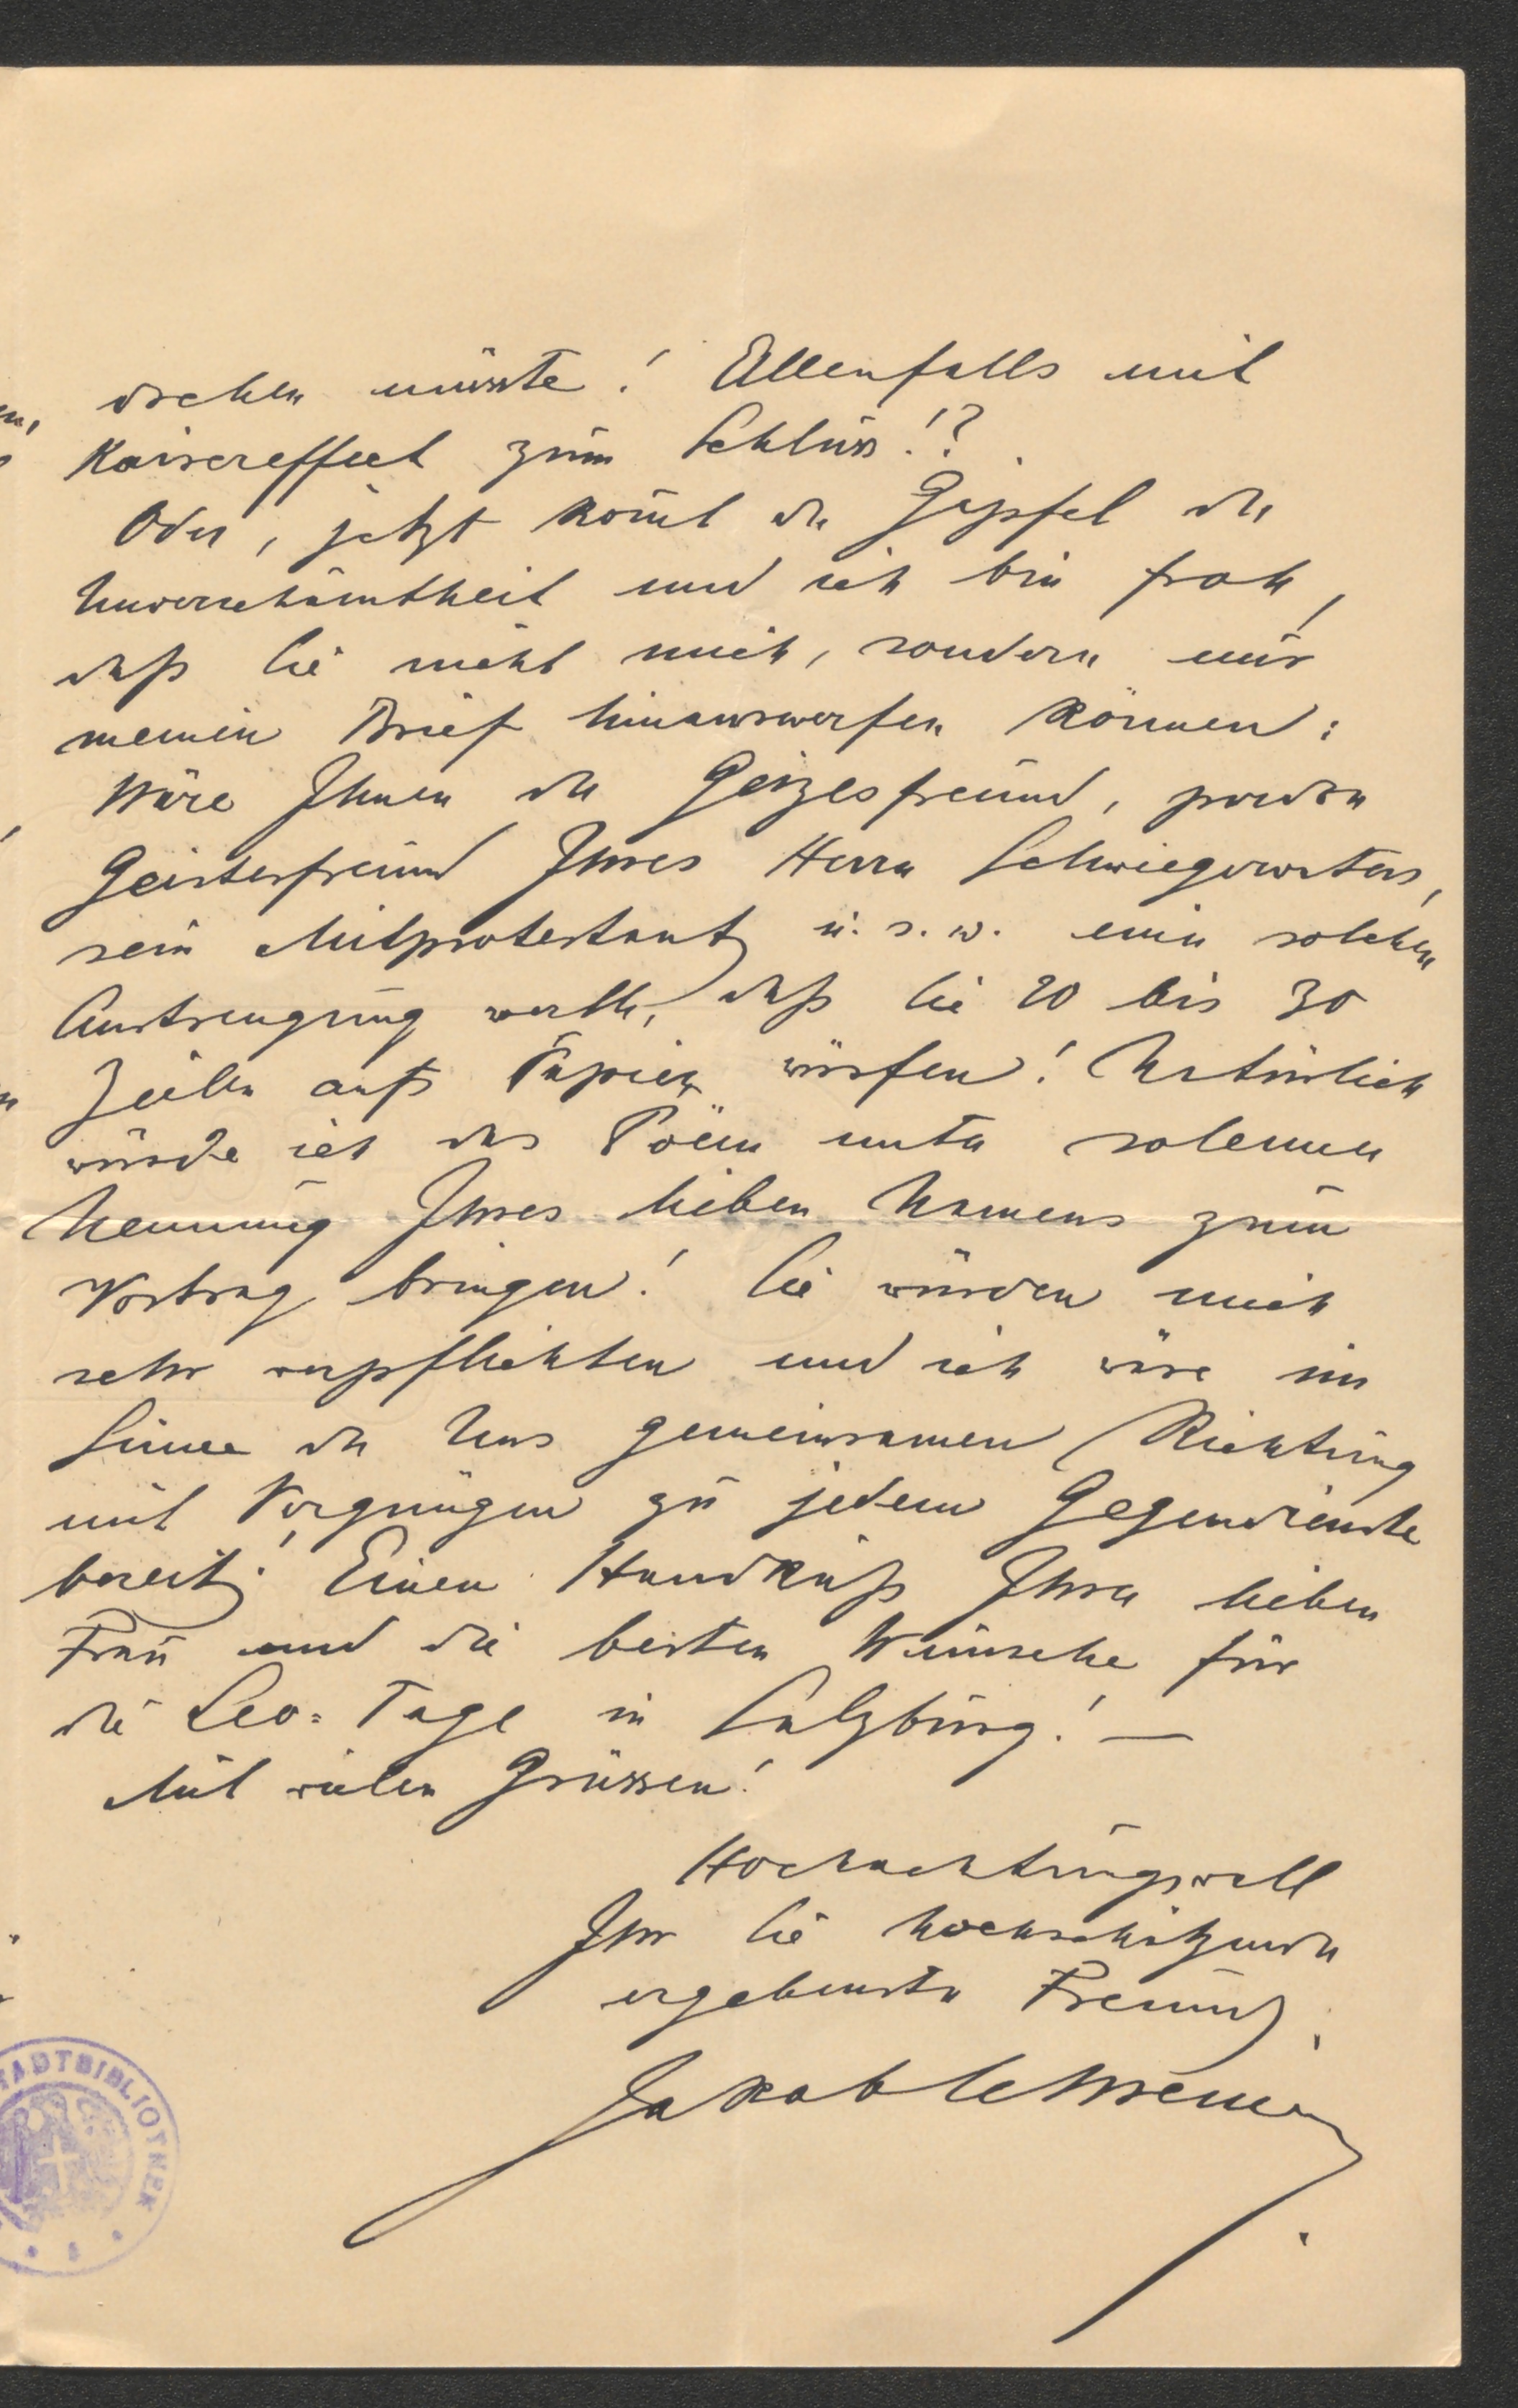 drehen müsste! Allenfalls mit
Kaisereffect zum Schluss!?
Oder, jetzt kom̄t der Gipfel der
Unverschämtheit und ich bin froh,
daß Sie nicht mich, sondern nur
meinen Brief hinauswerfen können:
Wäre Ihnen der Geizesfreund, pardon
Geistesfreund Ihres Herrn Schwiegervaters,
sein Mitprotestant u. s. w. einer solchen
Anstrengung werth, daß Sie 20 bis 30
Zeilen aufs Papier würfen! Natürlich
würde ich das Poëm unter solenner
Nennung Ihres lieben Namens zum
Vortrag bringen! Sie würden mich
sehr verpflichten und ich wäre im
Sinne der Uns gemeinsamen Richtung
mit Vergnügen zu jedem Gegendienste
bereit. Einen Handkuß Ihrer lieben
Frau und die besten Wünsche für
die Leo-Tage in Salzburg! —
Mit vielen Grüssen!
Hochachtungsvoll
Ihr Sie hochschätzender
ergebenster Freund
Jakob
ADTBIBLIOTHEK